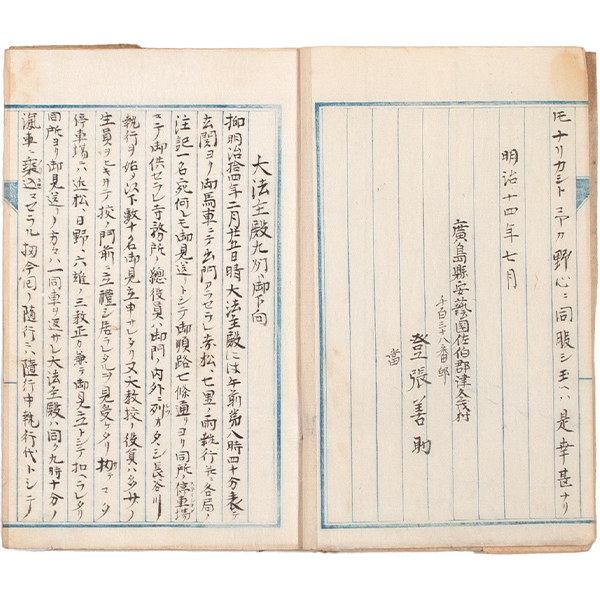 モナリカシトニテワカ野心ニ同服シ玉ハヽ是幸甚ナリ
明治十四年七月
廣島縣安藝國佐伯郡津久茂村
千百三十八番邸
登張善助
當
大法主殿九州ヘ御下向
抑明治拾四年二月廿五日時大法主殿にハ午前第八時四十分表
玄関ヨリ御馬車ニテ出門アラセラレ赤松、七里ノ両執行并ニ各局ノ
注記一名宛何レモ御見送リトシテ御順路七條通リヨリ同所ノ停車場
ニテ御供セラレ寺務所ノ總役員ハ御門ノ内外ニ列ヲタヽシ長谷川
執行ヲ始メ以下数十名御見立申サレタリ又大教校ノ役員ハ多サノ
生員ヲヒキヰテ校ノ門前ニ立禮シ居ラレタルヲ見受ケタリ扨テマタ
停車場ニハ近松日野、六雄ノ三教正カ兼テ御見立トシテ扣ヘラレタリ
同所ヨリ御見送リノ方々ハ一同車ヨリ返サレ大法主殿ハ同ク九時十分ノ
滊車ニ乗込マセラル扨今回ノ随行ニハ随行中執行代トシテ